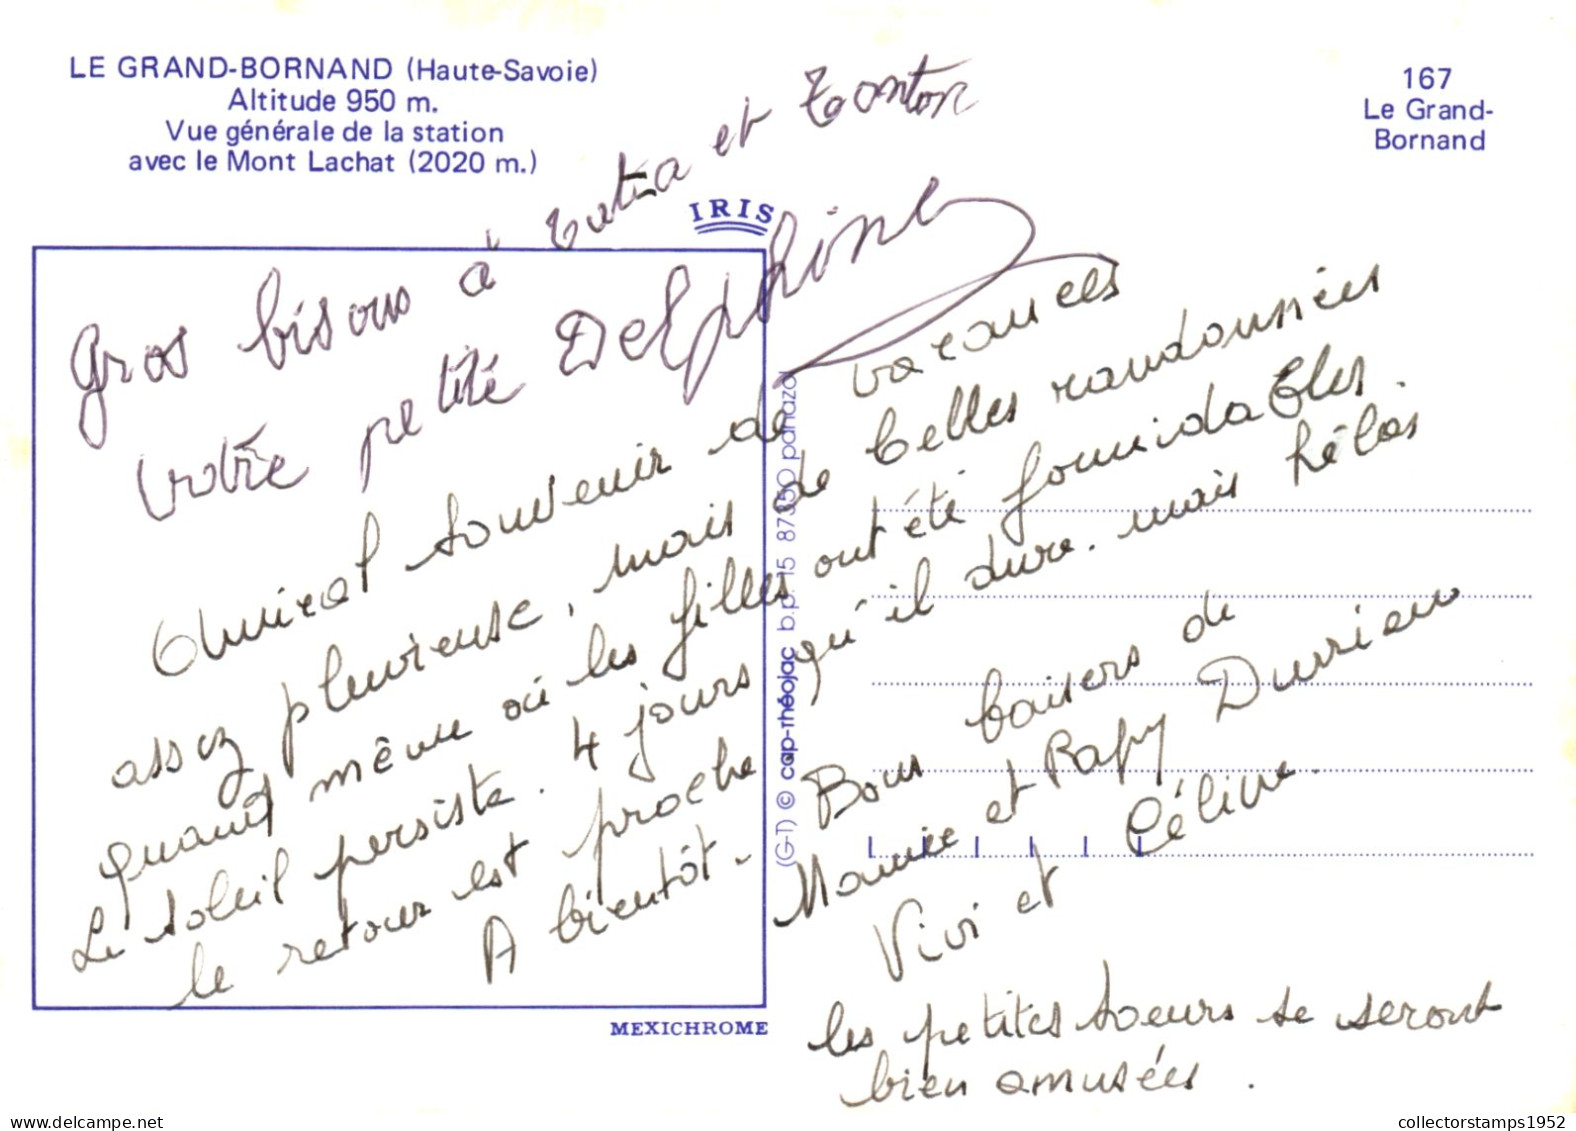 LE GRAND-BORNAND (Haute-Savoie)
Altitude 950 m.
Vue générale de la station
avec le Mont Lachat (2020 m.)
167
Le Grand-
Bornand
IRIS
Gros bisous à tatia et Tonton
votre petite Delphine
Amical souvenir de vacances
assez pluvieuse, mais de belles randonnées
quand même où les filles ont été formidables.
Le soleil persiste. 4 jours qu'il dure. mais hélas
le retour est proche
A bientôt -
Bons baisers de
Mamie et Papy Durrieu
Vivi et Céline.
les petites soeurs se seront
bien amusées.
(G-T) © cap-théojac b.p. 15 87350 panazol
MEXICHROME
collectorstamps1952